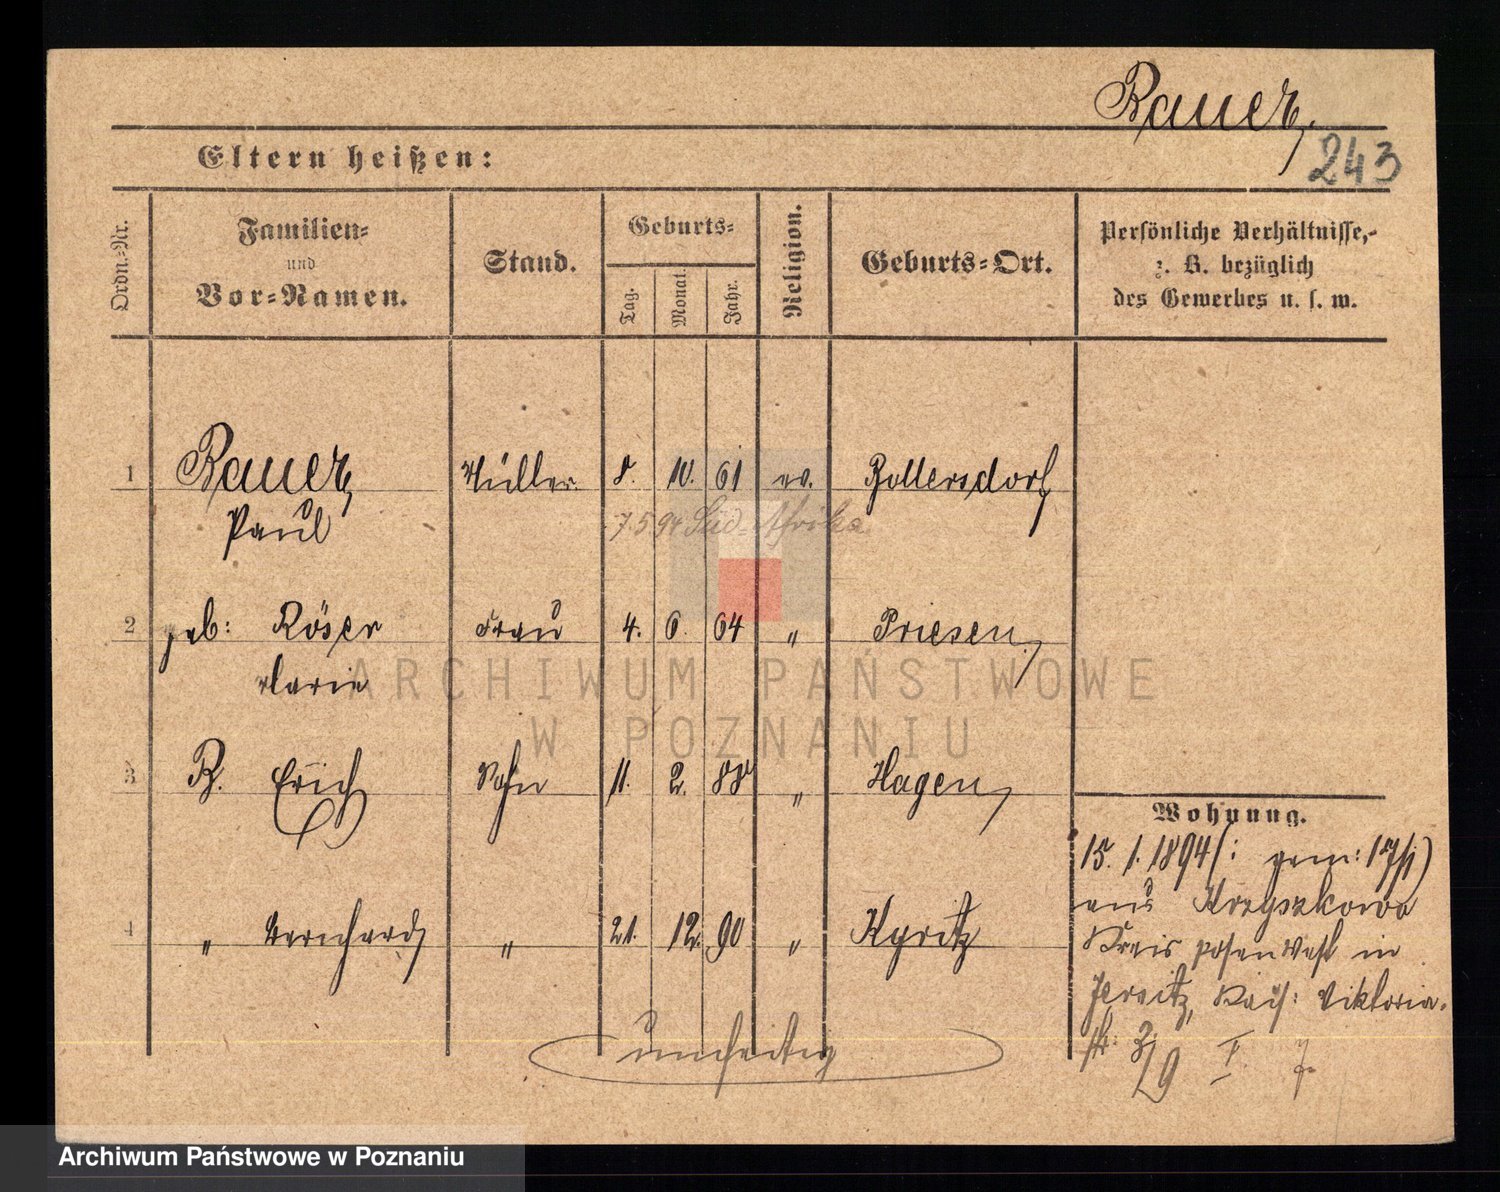 Bauer,
243
Eltern heißen:
Ordn.-Nr.
Familien-
und
Vor-Namen.
Stand.
Geburts-
Tag.
Monat.
Jahr.
Religion.
Geburts-Ort.
Persönliche Verhältnisse,-
z. B. bezüglich
des Gewerbes u. s. w.
1 Bauer, Müller 8. 10. 61 ev. Zollersdorf
Paul 7.5.94 Süd-Afrika
2 geb: Röser Frau 4. 6. 64 " Priesen,
Marie
3 B. Erich Sohn 11. 2. 88 " Hagen,
4 " Bernhard " 21. 12. 90 " Kyritz
umseitig
Wohnung.
15. 1. 1894 (: gem: 17/1)
aus Krzyszkowo
Kreis Posen West in
Jersitz, Kais: Viktoria-
str. 8/9 I.
ARCHIWUM PAŃSTWOWE
W POZNANIU
Archiwum Państwowe w Poznaniu